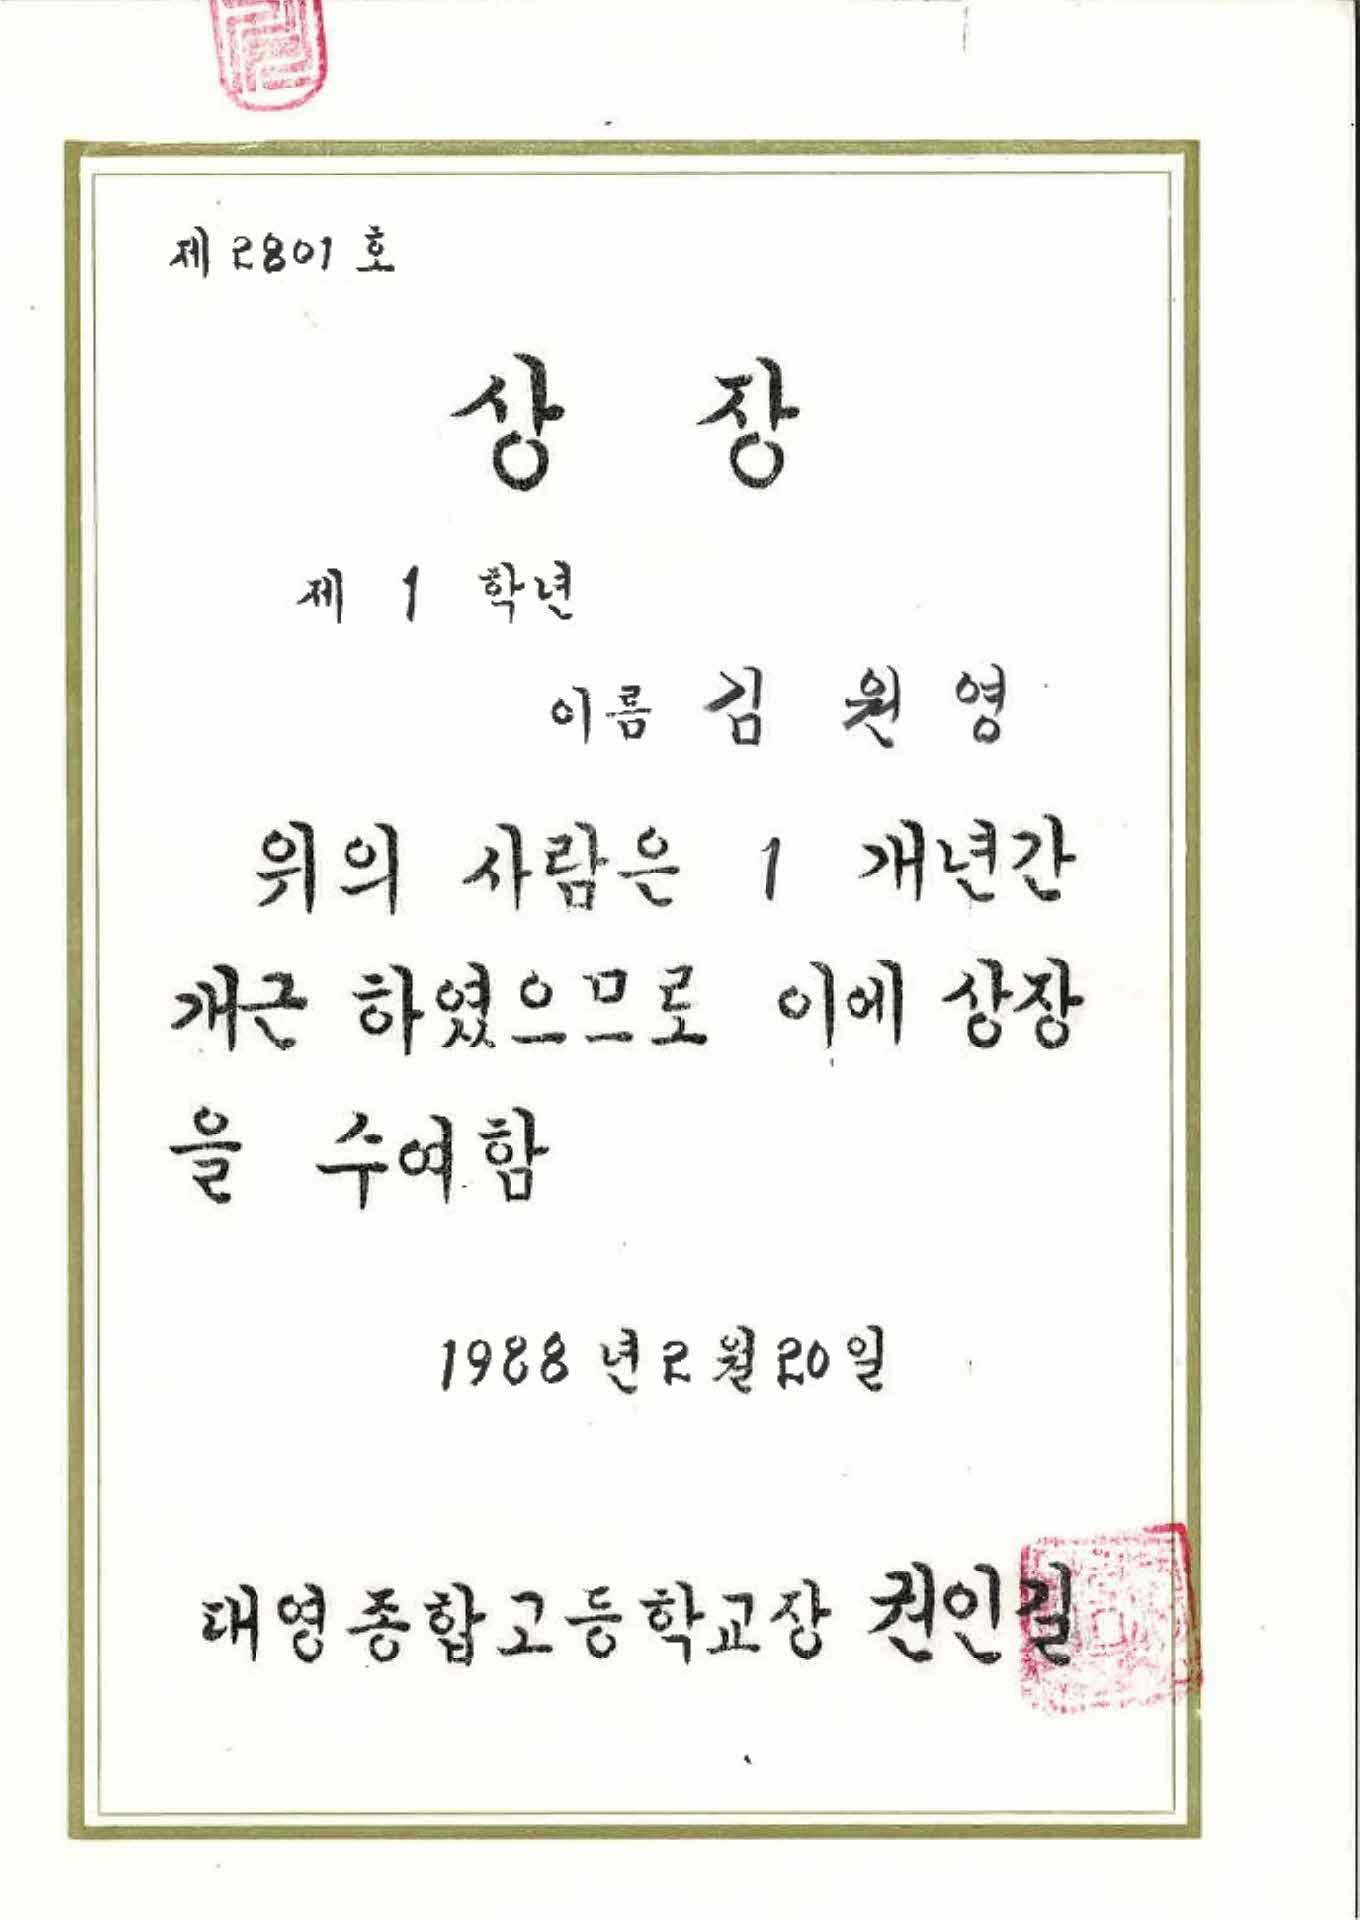 제 2801 호
상 장
제 1 학년
이름 김 원 영
위의 사람은 1 개년간
개근 하였으므로 이에 상장
을 수여함
1988 년 2 월 20 일
태영종합고등학교장 권인길